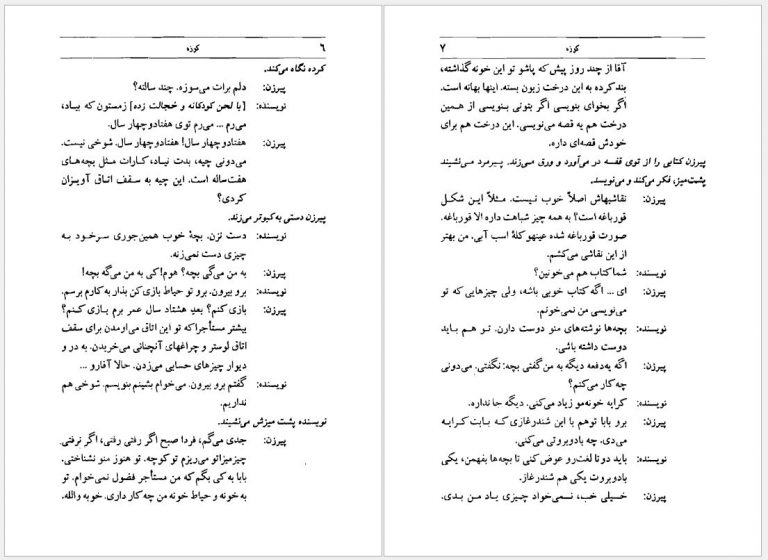 ۶ کوزه
کرده نگاه می‌کند.
پیرزن: دلم برات می‌سوزه. چند سالته؟
نویسنده: [با لحن کودکانه و خجالت زده] زمستون که بیاد،
می‌رم ... می‌رم توی هفتادوچهار سال.
پیرزن: هفتادوچهار سال! هفتادوچهار سال. شوخی نیست.
می‌دونی چیه، بدت نیاد، کارات مثل بچه‌های
هفت‌ساله است. این چیه به سقف اتاق آویزان
کردی؟
پیرزن دستی به کبوتر می‌زند.
نویسنده: دست نزن. بچهٔ خوب همین‌جوری سرخود به
چیزی دست نمی‌زنه.
پیرزن: به من می‌گی بچه؟ هوم! کی به من می‌گه بچه!
نویسنده: برو بیرون. برو تو حیاط بازی کن بذار به کارم برسم.
پیرزن: بازی کنم؟ بعدِ هشتاد سال عمر برم بازی کنم؟
بیشتر مستأجرا که تو این اتاق می‌اومدن برای سقف
اتاق لوستر و چراغهای آنچنانی می‌خریدن. به در و
دیوار چیزهای حسابی می‌زدن. حالا آقارو ...
نویسنده: گفتم برو بیرون. می‌خوام بشینم بنویسم. شوخی هم
نداریم.
نویسنده پشت میزش می‌نشیند.
پیرزن: جدی می‌گم، فردا صبح اگر رفتی رفتی، اگر نرفتی،
چیزمیزاتو می‌ریزم تو کوچه. تو هنوز منو نشناختی.
بابا به کی بگم که من مستأجر فضول نمی‌خوام. تو
به خونه و حیاط خونه من چه کار داری. خوبه والله.
کوزه ۷
آقا از چند روز پیش که پاشو تو این خونه گذاشته،
بند کرده به این درخت زبون بسته. اینها بهانه است.
اگر بخوای بنویسی اگر بتونی بنویسی از همین
درخت هم یه قصه می‌نویسی. این درخت هم برای
خودش قصه‌ای داره.
پیرزن کتابی را از توی قفسه در می‌آورد و ورق می‌زند. پیرمرد می‌نشیند
پشت‌میز، فکر می‌کند و می‌نویسد.
پیرزن: نقاشیهاش اصلاً خوب نیست. مثلاً این شکل
قورباغه است؟ به همه چیز شباهت داره الا قورباغه.
صورت قورباغه شده عینهو کلهٔ اسب آبی. من بهتر
از این نقاشی می‌کشم.
نویسنده: شما کتاب هم می‌خونین؟
پیرزن: ای ... اگه کتاب خوبی باشه، ولی چیزهایی که تو
می‌نویسی من نمی‌خونم.
نویسنده: بچه‌ها نوشته‌های منو دوست دارن. تو هم باید
دوست داشته باشی.
پیرزن: اگه یه‌دفعه دیگه به من گفتی بچه؛ نگفتی. می‌دونی
چه کار می‌کنم؟
نویسنده: کرایه خونه‌مو زیاد می‌کنی. دیگه جا نداره.
پیرزن: برو بابا توهم با این شندرغازی که بابت کرایه
می‌دی. چه بادوبروتی می‌کنی.
نویسنده: باید دو تا لغت‌رو عوض کنی تا بچه‌ها بفهمن، یکی
بادوبروت یکی هم شندرغاز.
پیرزن: خیلی خب، نمی‌خواد چیزی یاد من بدی.